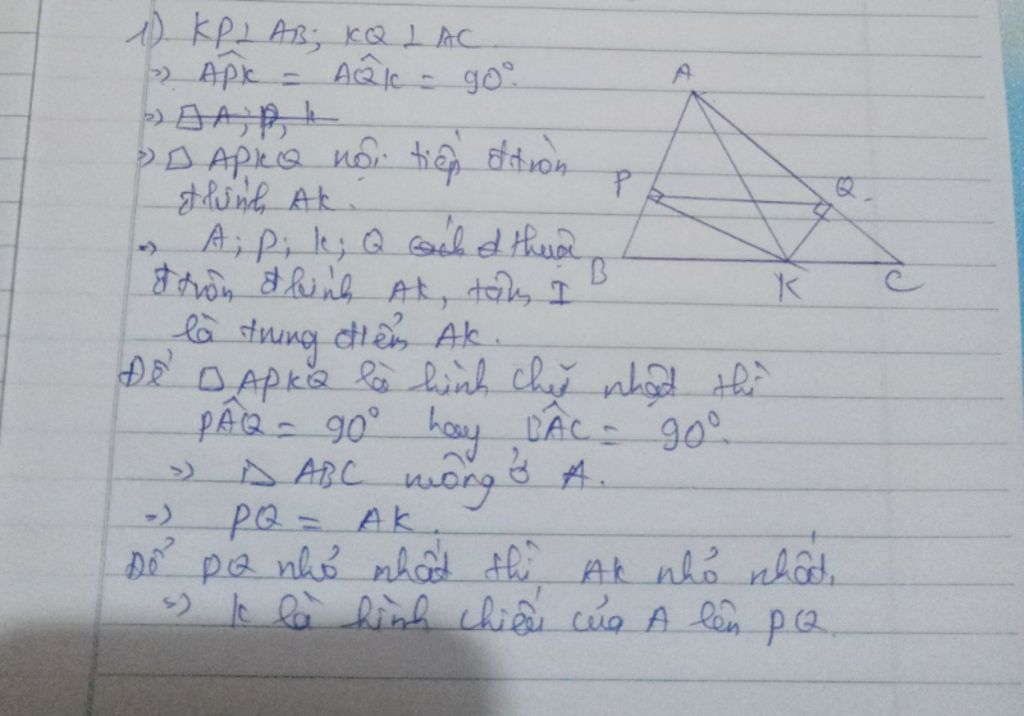 1) KP ⊥ AB; KQ ⊥ AC
=> APK̂ = AQ̂K = 90°.
=> □ A; P, K
=> □ APKQ nội tiếp đtròn
đkính AK.
=> A; P; K; Q thuộc
đtròn đkính AK, tâm I
là trung điểm AK.
Để □ APKQ là hình chữ nhật thì
PÂQ = 90° hay BÂC = 90°.
=> △ ABC vuông ở A.
=> PQ = AK.
Để PQ nhỏ nhất thì AK nhỏ nhất.
=> K là hình chiếu của A lên PQ.
A
P
Q
B
K
C